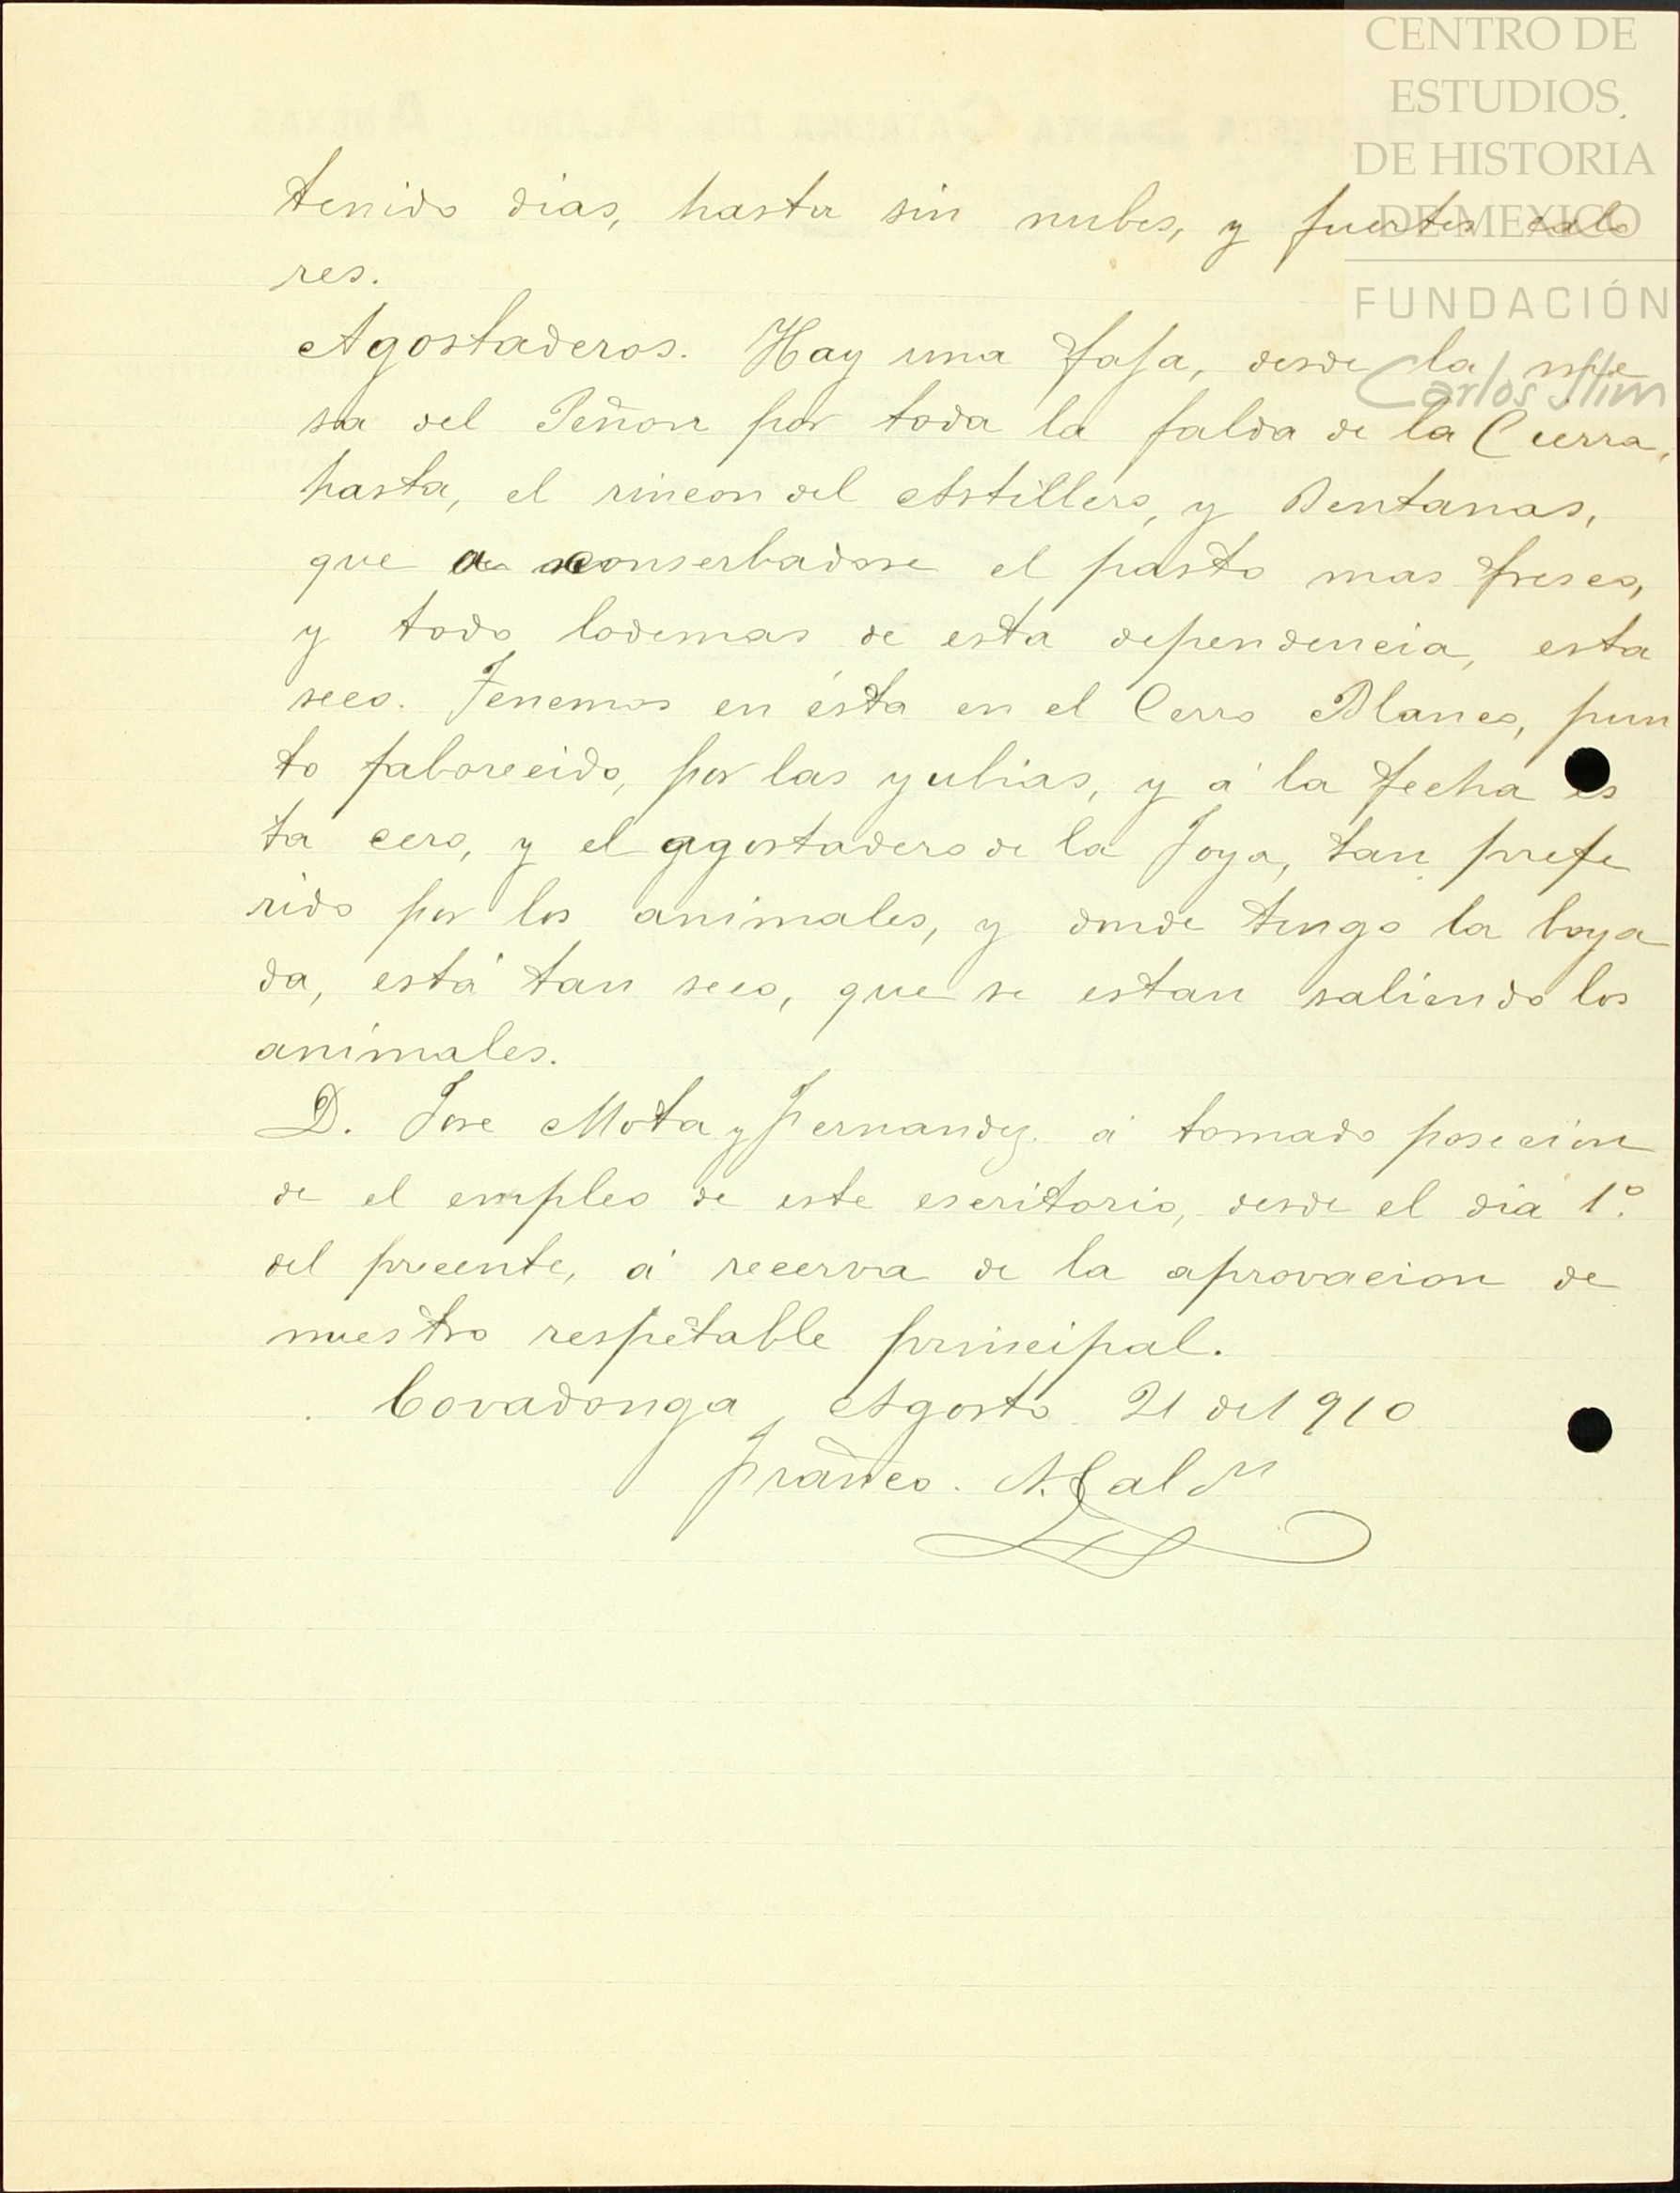 CENTRO DE
ESTUDIOS
DE HISTORIA
DE MEXICO
FUNDACIÓN
Carlos Slim
tenido dias, hasta sin nubes, y fuertes calo
res.
Agostaderos. Hay una faja, desde la me
sa del Peñon por toda la falda de la Cierra,
hasta, el rincon del Astillero, y Bentanas,
que a conserbadose el pasto mas fresco,
y todo lodemas de esta dependencia, esta
seco. Tenemos en ésta en el Cerro Blanco, pun
to faborecido, por las yubias, y á la fecha es
ta cero, y el agostadero de la Joya, tan prefe
rido por los animales, y donde tengo la boya
da, está tan seco, que se estan saliendo los
animales.
D. Jose Mota y Fernandez á tomado posecion
de el empleo de este escritorio, desde el dia 1º.
del precente, á recerva de la aprovacion de
nuestro respetable principal.
Covadonga, Agosto 21 de 1910
Franco.